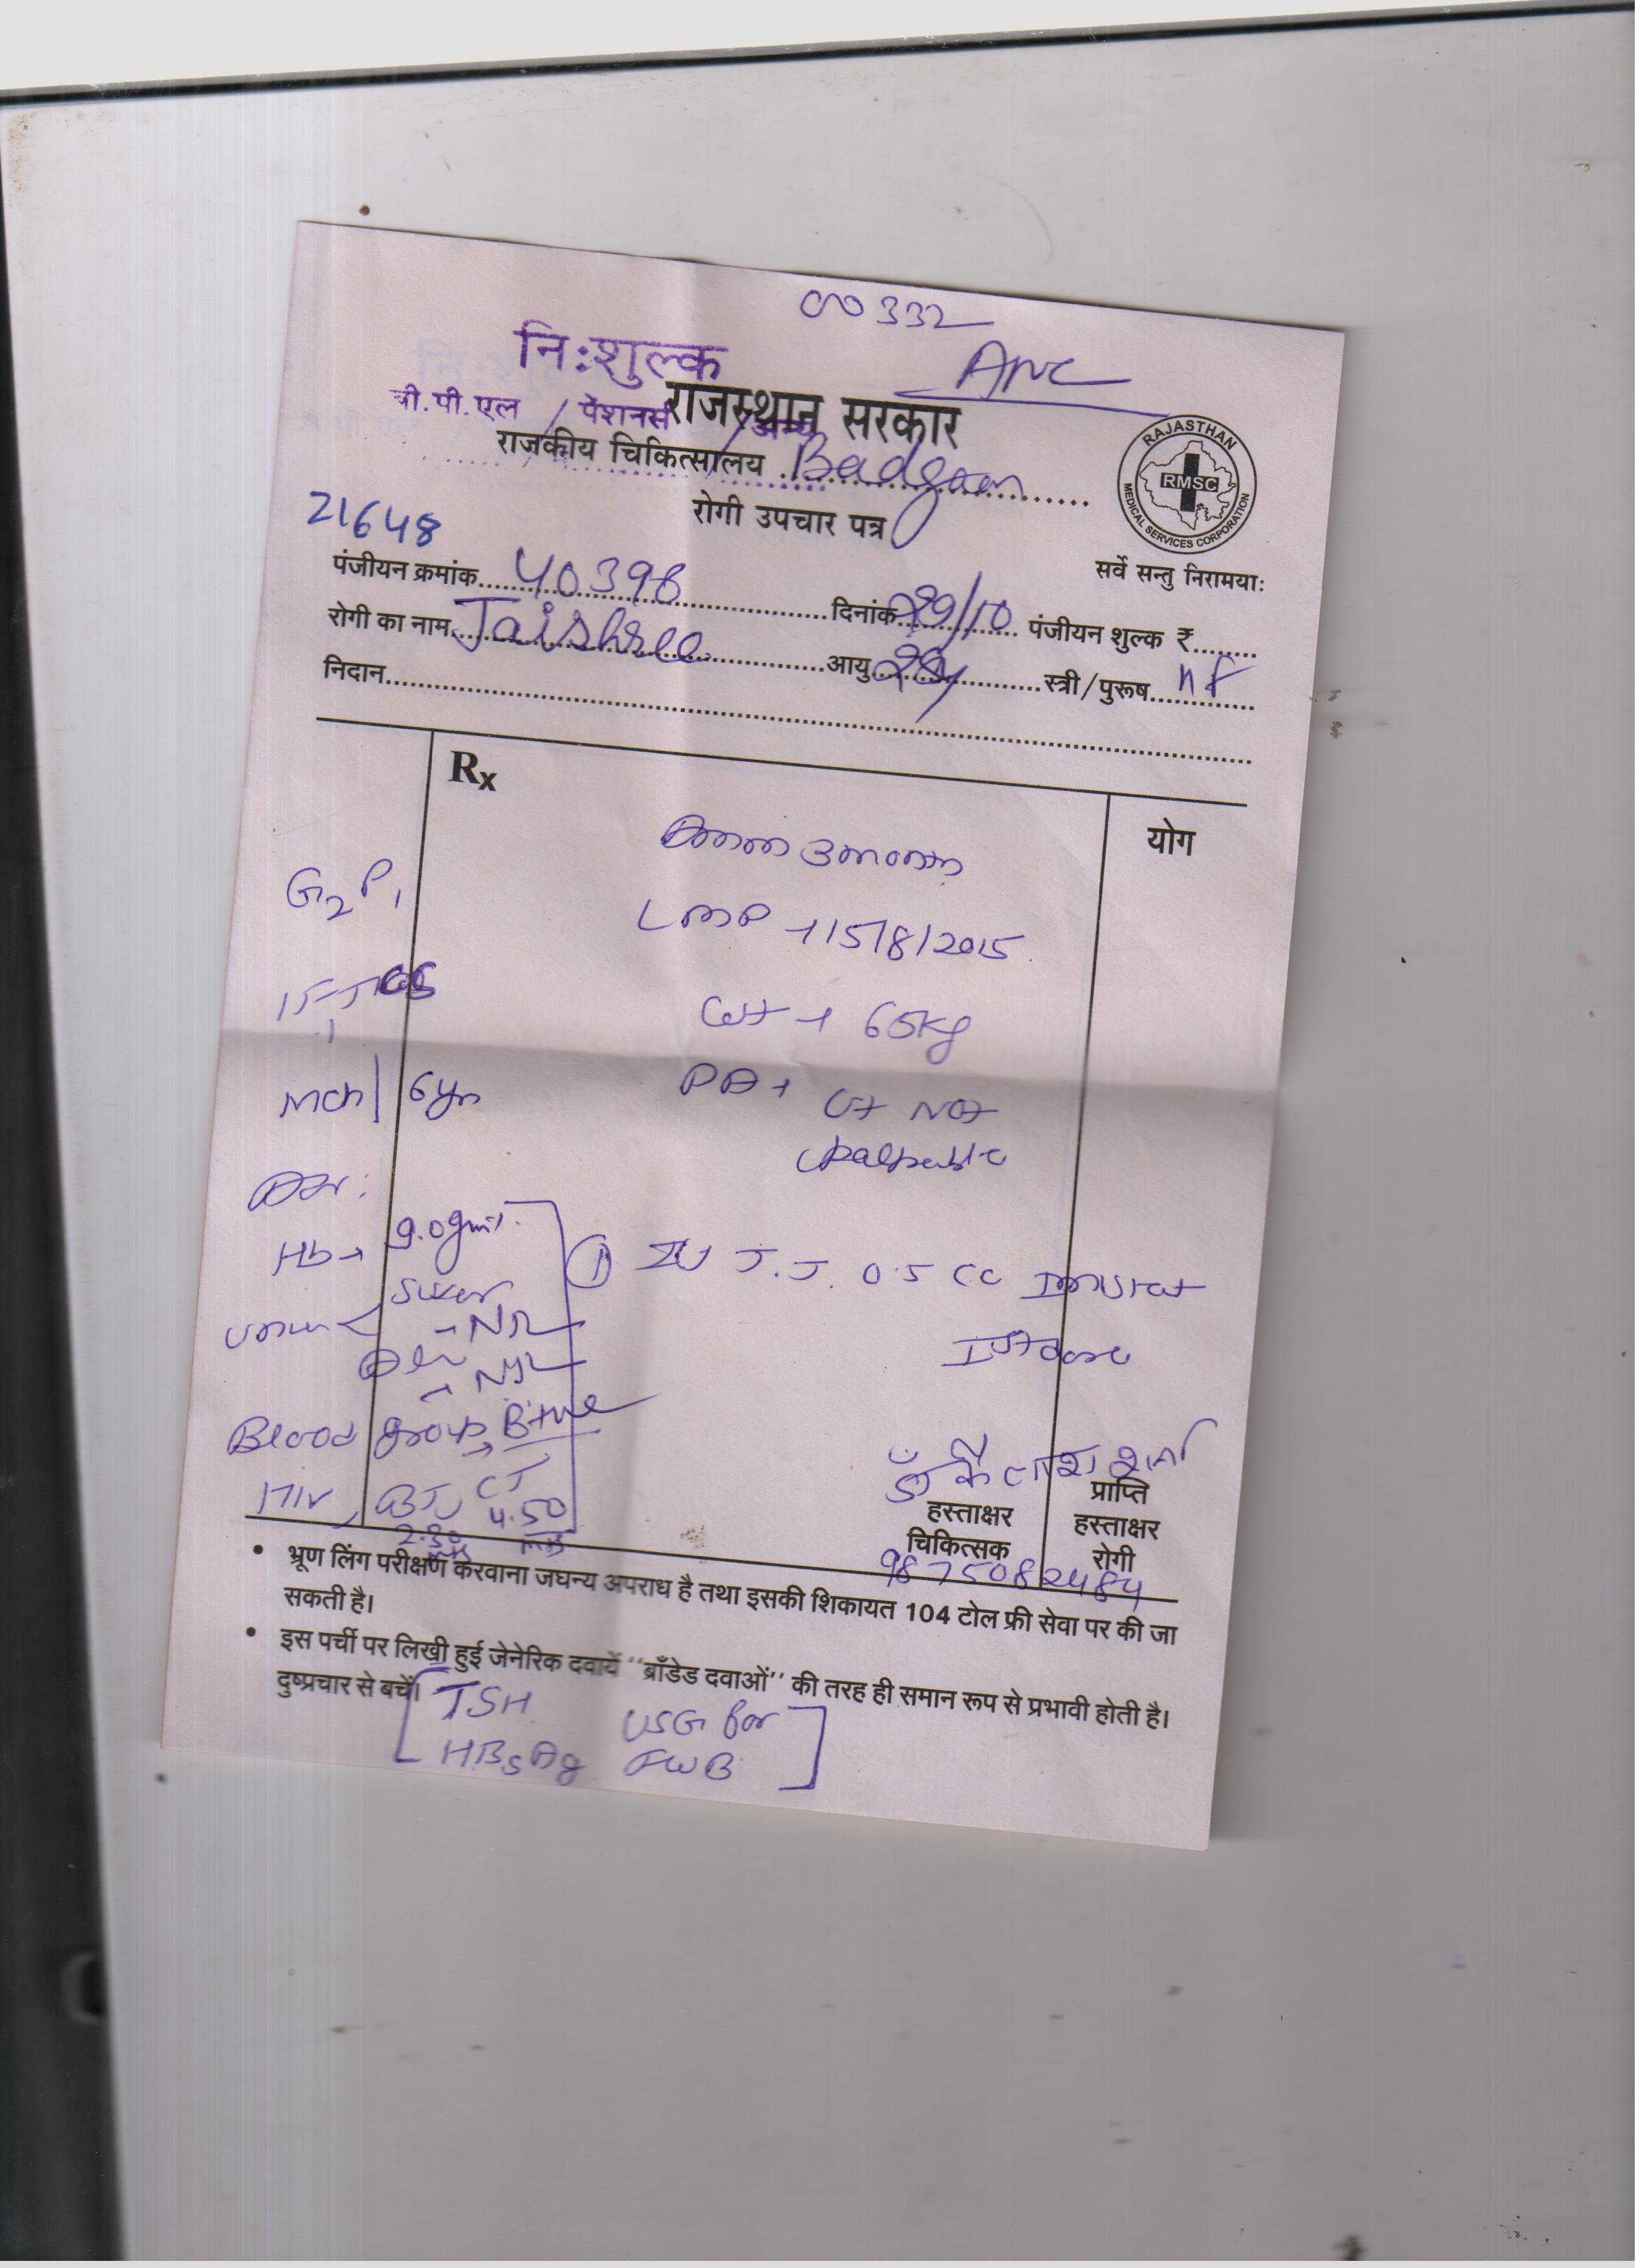 00332
ANC
नि:शुल्क
बी.पी.एल / पेंशनर्स / अन्य
राजस्थान सरकार
राजकीय चिकित्सालय Badgaon
RAJASTHAN
RMSC
MEDICAL SERVICES CORPORATION
रोगी उपचार पत्र
सर्वे सन्तु निरामया:
21648
पंजीयन क्रमांक 40398 दिनांक 29/10 पंजीयन शुल्क ₹
रोगी का नाम Jaishree आयु स्त्री/पुरूष
निदान
Rx
योग
3 month
G2P1
LMP → 15/8/2015
Wt → 65kg
Mch | 6yr
PA → Ut Not
palpable
Hb → 9.0gm%
① Inj T.T. 0.5 CC
Urine < Sugar
→ Nil
Ist dose
→ Nil
Blood group → B+ve
HIV, BT, CT
2.30 4.50
डॉ कैलाश शर्मा
हस्ताक्षर
चिकित्सक
प्राप्ति
हस्ताक्षर
रोगी
9875082484
• भ्रूण लिंग परीक्षण करवाना जघन्य अपराध है तथा इसकी शिकायत 104 टोल फ्री सेवा पर की जा
सकती है।
• इस पर्ची पर लिखी हुई जेनेरिक दवायें ''ब्राँडेड दवाओं'' की तरह ही समान रूप से प्रभावी होती है।
दुष्प्रचार से बचें।
TSH USG for
HBsAg FWB